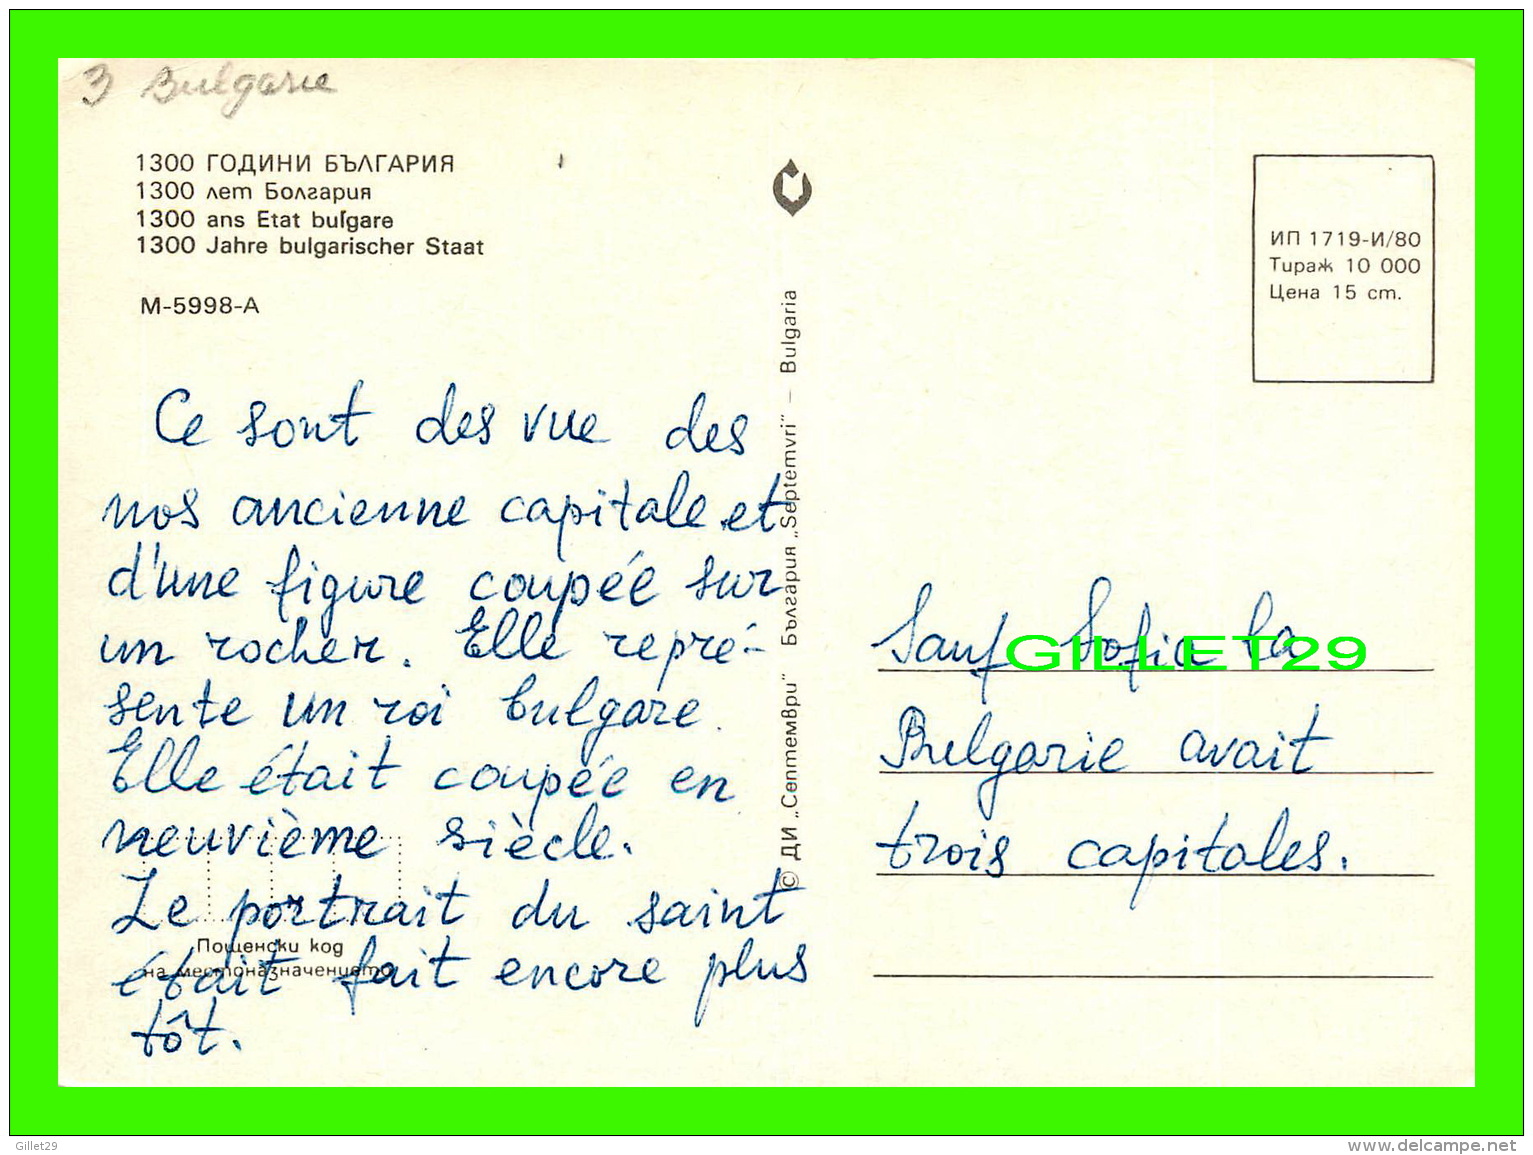 3 Bulgarie
1300 ГОДИНИ БЪЛГАРИЯ
1300 лет Болгария
1300 ans Etat bulgare
1300 Jahre bulgarischer Staat
М-5998-А
Ce sont des vue des
nos ancienne capitale et
d'une figure coupée sur
un rocher. Elle repré-
sente un roi bulgare.
Elle était coupée en
neuvième siècle.
Le portrait du saint
était fait encore plus
tôt.
Пощенски код
на местоназначението
© ДИ „Септември“ България „Septemvri“ — Bulgaria
ИП 1719-И/80
Тираж 10 000
Цена 15 ст.
Sauf Sofia la
Bulgarie avait
trois capitales.
GILLET29
Gillet29
www.delcampe.net